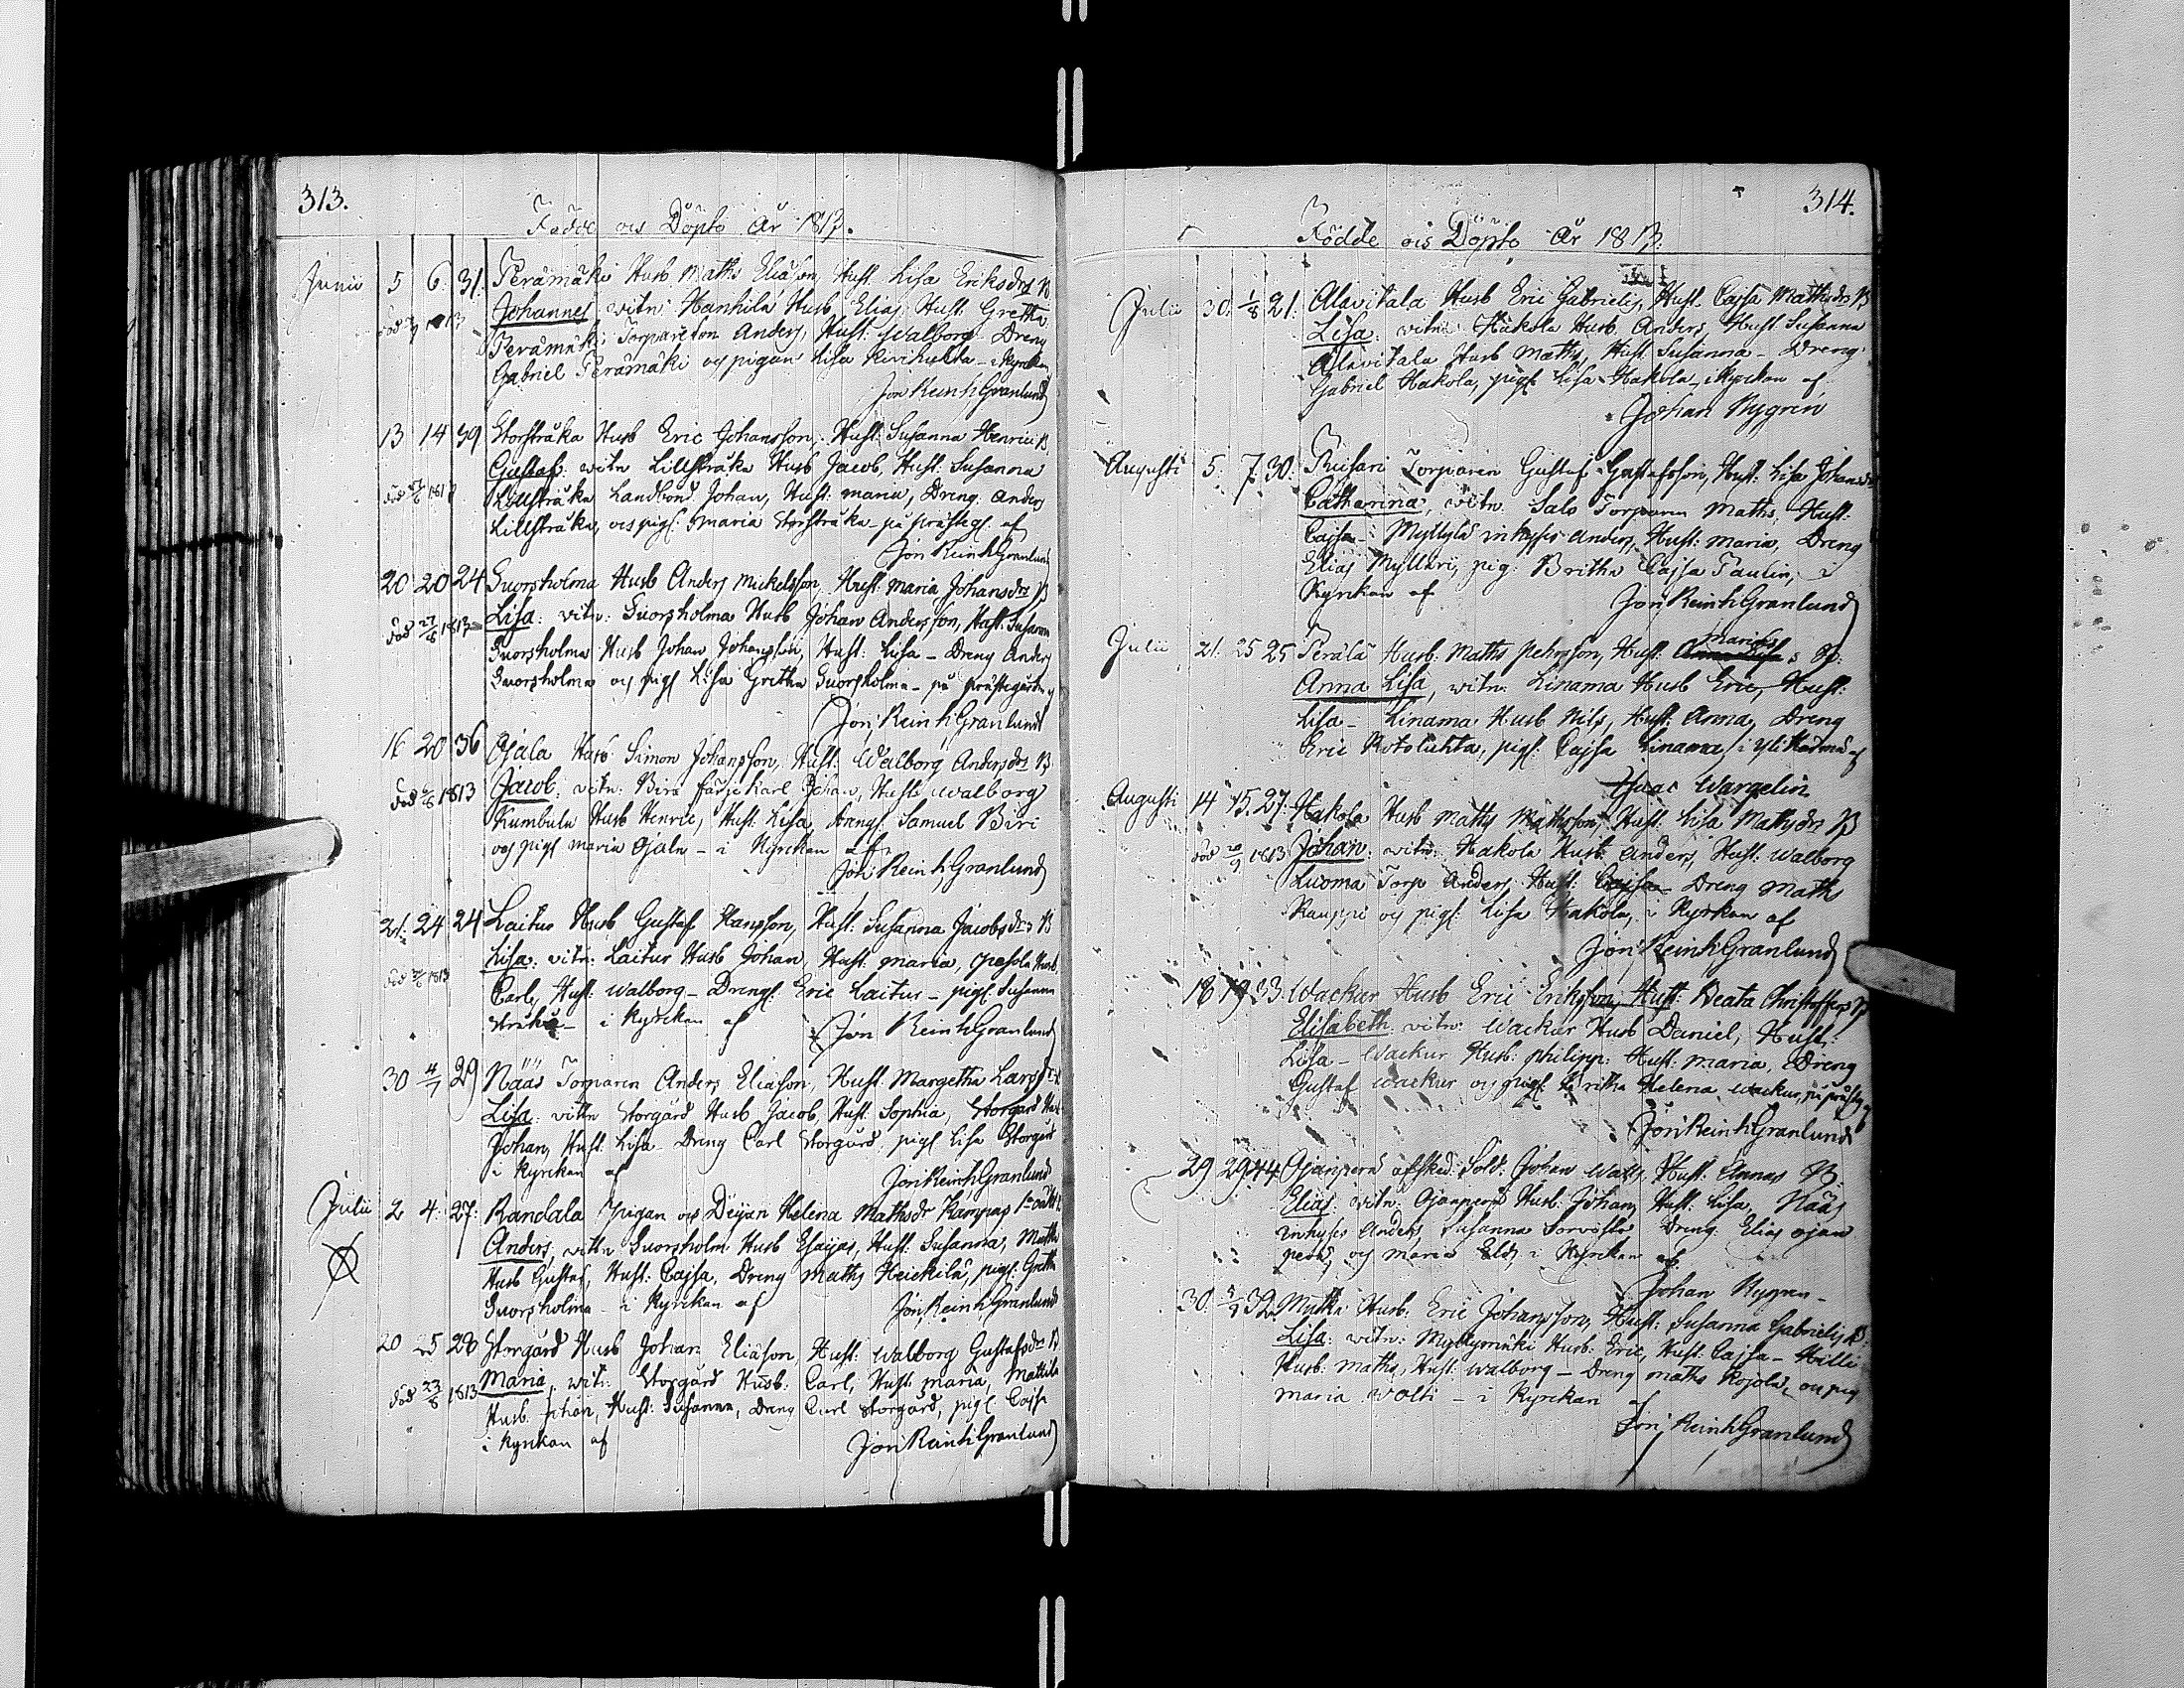 313.
Födde och Döpte år 1813.
Junii 5 6 31. Perämäki Husb Maths Eliason, Hust. Lisa Eriksdr B
Johannes witn: Hanhila Husb Elias, Hust Gretha
Perämäki Torpareson Anders, Hust. Walborg Dreng
Gabriel Perämäki och pigan Lisa i Kyrckan
Jon Reinh Granlund
13 14 39 Storstråka Husb Eric Johansson, Hust: Susanna Henrici B
Gustaf: witn Lillstråka Husb Jacob, Hust: Susanna
Lillstråka Landbond Johan, Hust: maria, Dreng: Anders
Lillstråka, och pigs: Maria Storstråka på prästeg: af
Jon Reinh Granlund
20 20 24 Suorsholma Husb Anders Mickelsson, Hust: Maria Johansdr B
död 27/6 1813 Lisa: witn: Suorsholma Husb Johan Andersson, Hust: Susanna
Suorsholma Husb Johan Johansson, Hust: Lisa – Dreng Anders
Suorsholma och pigs Lisa Gretha Suorsholma – på prästegården af
Jon Reinh Granlund
16 20 36 Ojala Husb Simon Johansson, Hust: Walborg Andersdr B
Jacob: witn: Biri färjekarl Johan, Hust: Walborg
Kumbula Husb Henric, Hust: Lisa, drengs: Samuel Biri
och pigs Maria Ojala – i Kyrckan af
Jon Reinh Granlund
21. 24 24 Laitus Husb Gustaf Hansson, Hust: Susanna Jacobsdr B
Lisa: witn: Laitus Husb Johan, Hust: Maria, Opesola Husb
Carl, Hust: Walborg – Drengs: Eric Laitus – pigs: Susanna
Stråka – i Kyrckan af Jon Reinh Granlund
30 4/7 29 Näås Torparen Anders Eliason, Hust: Margetha Larsdr
Lisa: vittn Storgård Husb Jacob, Hust: Sophia, Storgård Husb
Johan, Hust: Lisa – Dreng Carl Storgård, pigs Lisa Storgård
i Kyrckan af Jon Reinh Granlund
Julii 2 4. 27: Randala pigan och Dejan Helena Mathsdr Kampas
Anders, vittn Suorsholm Husb Esaijas, Hust: Susanna, Mattila
Husb Gustaf, Hust: Cajsa, Dreng Maths Heickilä, pigs: Gretha
Suorsholma – i Kyrckan af Jon Reinh Granlund
20 25 28 Storgård Husb Johan Eliäson, Hust: Walborg Gustafsdr B
död 23/8 1813 Maria, witn: Storgård Husb: Carl, Hust: Maria, Mattila
Husb. Johan, Hust: Susanna, Dreng Carl Storgård, pigs Cajsa
i Kyrckan af Jon Reinh Granlund
314.
Födde och Döpte år 1813.
Julii 30. 1/8 21. Alavitala Husb Eric Gabrielis, Hust. Cajsa Mathsdr B
Lisa: vittn: Hakola Husb Anders, Hust Susanna
Alavitala Husb Maths, Hust: Susanna – Dreng
Gabriel Hakola, pigs: Lisa Hakola, i Kyrckan af
Johan Nygrén
Augusti 5. 7. 30. Ruisari Torparen Gustaf Gustafsson, Hust: Lisa Johansdr
Catharina, witn Salo Torparen Maths, Hust:
Cajsa – Myllylä inhyses Anders, Hust: Maria, Dreng
Elias Mylläri, pig: Britha Cajsa Paulin, i
Kyrckan af Jon Reinh Granlund
Julii 21. 25 25 Perälä Husb: Maths Pehrsson, Hust: Marias B:
Anna Lisa, witn: Linama Husb Eric, Hust:
Lisa – Linama Husb Nils, Hust: Anna, Dreng
Eric, pigs: Cajsa Linama, i Yli Härmä af
Isaac Wargelin
Augusti 14 15. 27. Hakola Husb Maths Mathsson, Hust: Lisa Mathsdr B
död 20/9 1813 Johan: witn: Hakola Husb: Anders, Hust: Walborg
Luoma Torp Anders Hust: Cajsa – Dreng Maths
Kauppi och pigs: Lisa Hakola, i Kyrckan af
Jon Reinh Granlund
18 19 33. Wackur Husb Eric Eriksson, Hust: Beata Christoffers B
Elisabeth witn: Wackur Husb Daniel, Hust:
Lisa – Wackur Husb: Philipp: Hust: Maria, Dreng
Gustaf Wackur och pigs: Britha Helena Wackur, på prästeg af
Jon Reinh Granlund
29 29 44 Ojanperä afsked: Sold: Johan Walls, Hust: Annas B:
Elias: witn: Ojanperä Husb: Johan, Hust: Lisa, Näås
inhyses Anders, Susanna Dreng: Elias Ojan
perä, och Maria i Kyrckan af.
Johan Nygren
30. 5/9 32. Husb: Eric Johansson, Hust: Susanna Gabrielis B:
Lisa: witn: Myllymäki Husb: Eric, Hust: Cajsa – Hilli
Husb: Maths, Hust: Walborg – Dreng Maths Rojola, och pig
Maria Wolti – i Kyrckan af
Jon Reinh Granlund